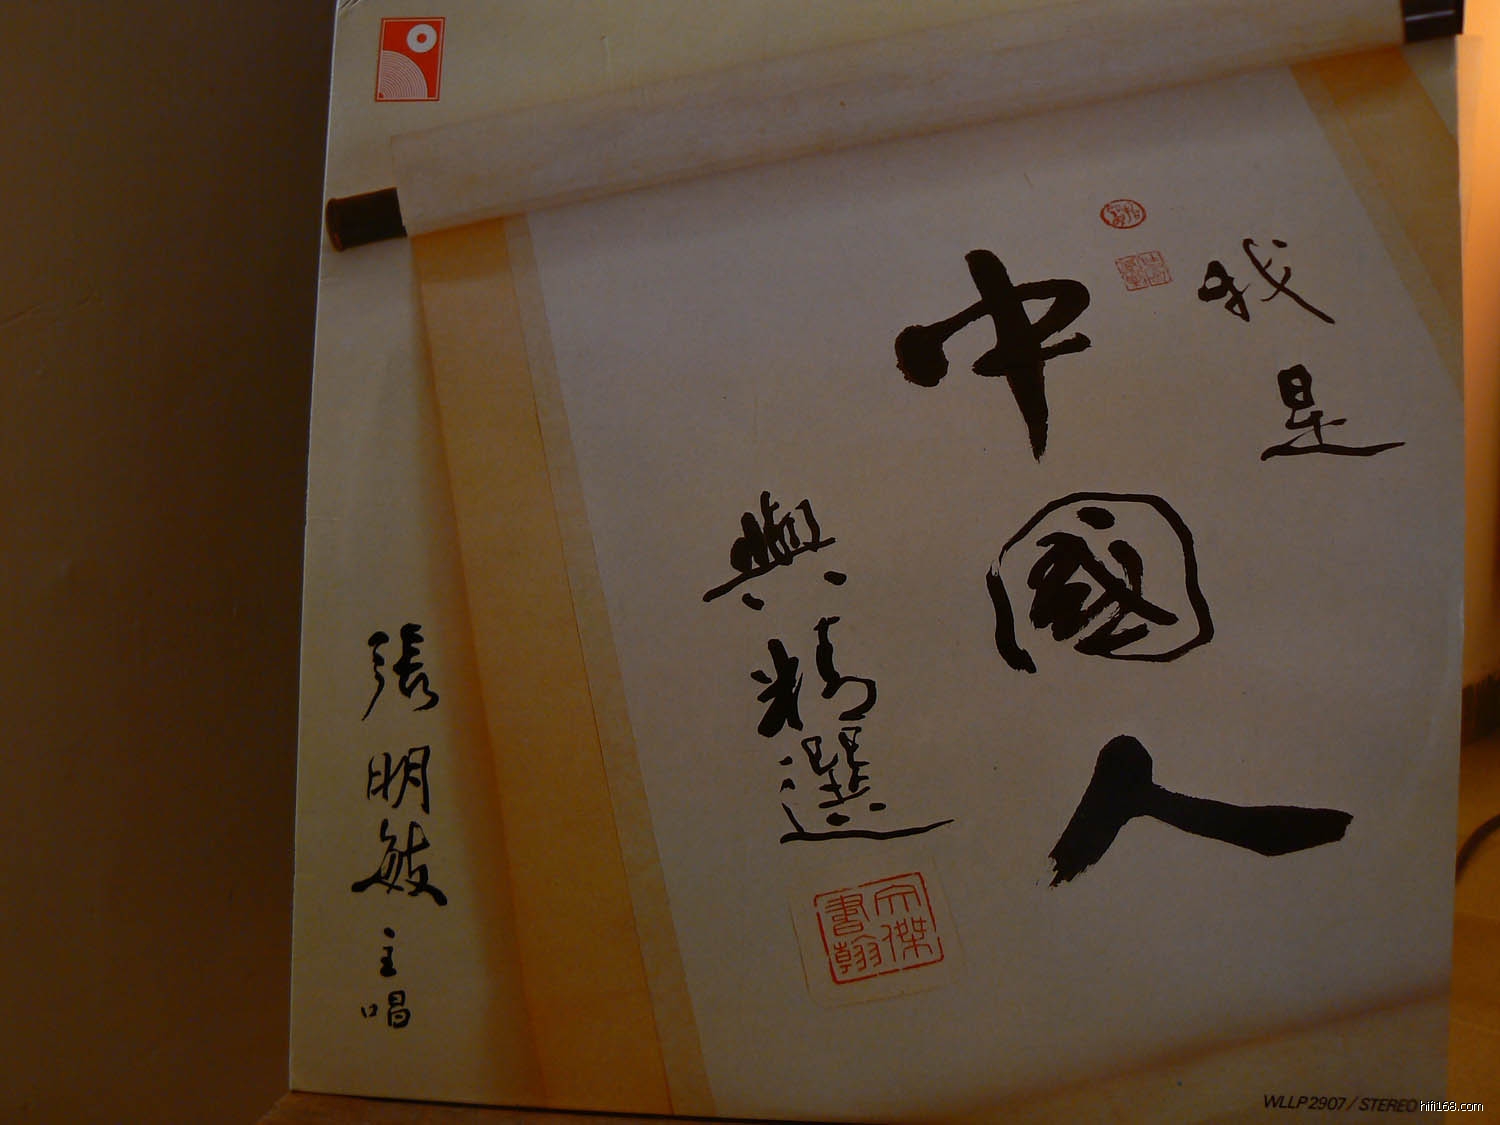 我是
中國人
與精選
文傑書翰
張明敏主唱
WLLP 2907 / STEREO
hifi168.com